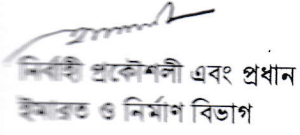 নির্বাহী প্রকৌশলী এবং প্রধান
ইমারত ও নির্মাণ বিভাগ